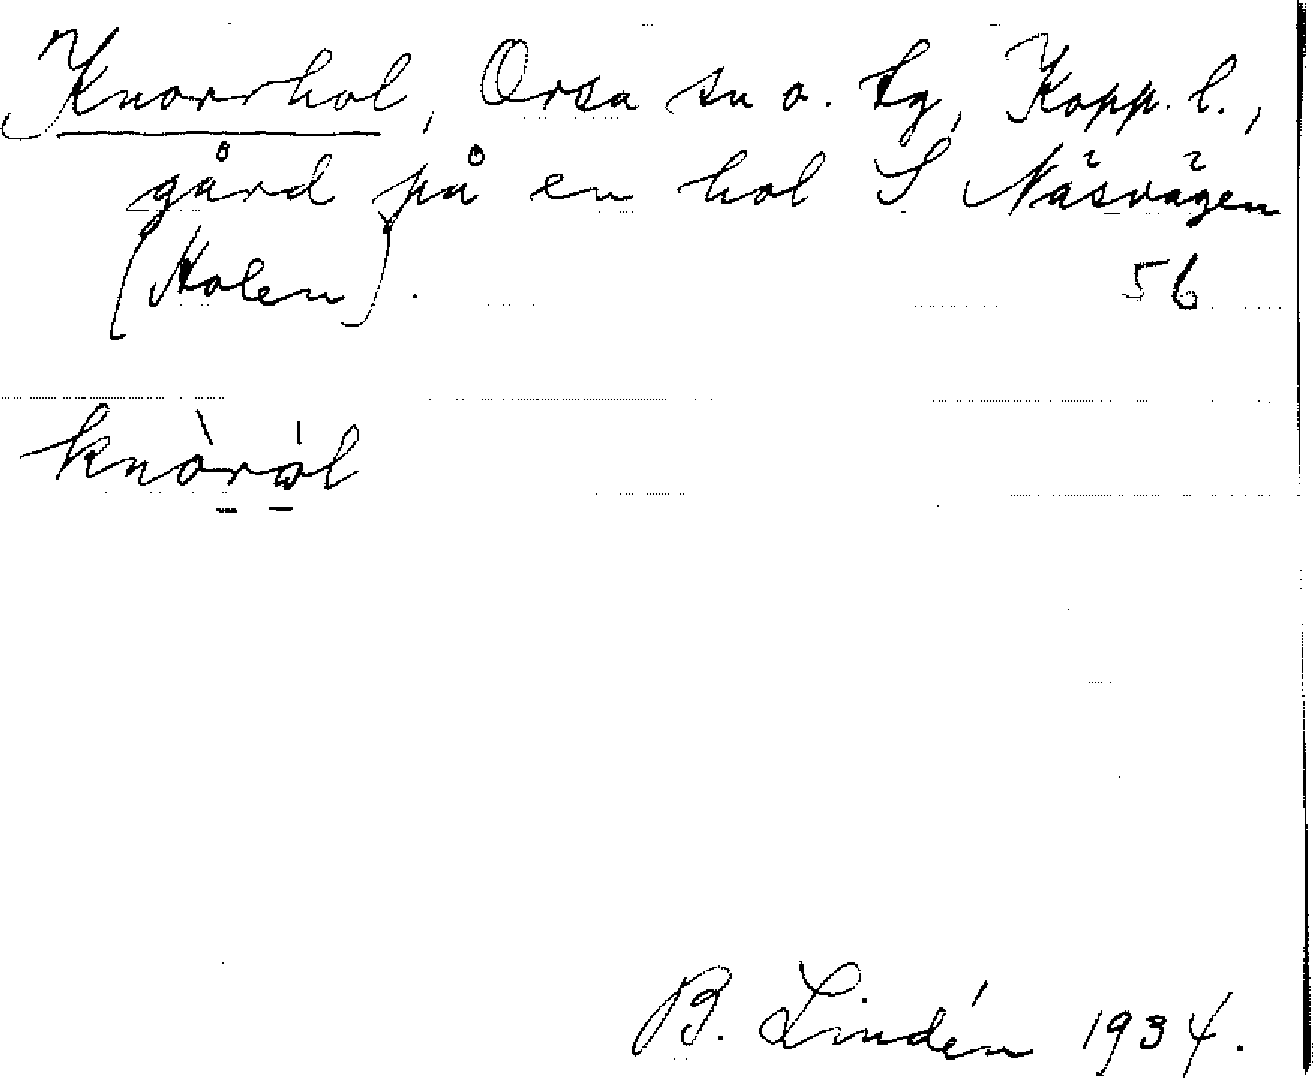 Knorrhol, Orsa sn o. tg, Kopp. l.,
gård på en hol S Näsvägen
(Holen). 56
knòról
B. Lindén 1934.